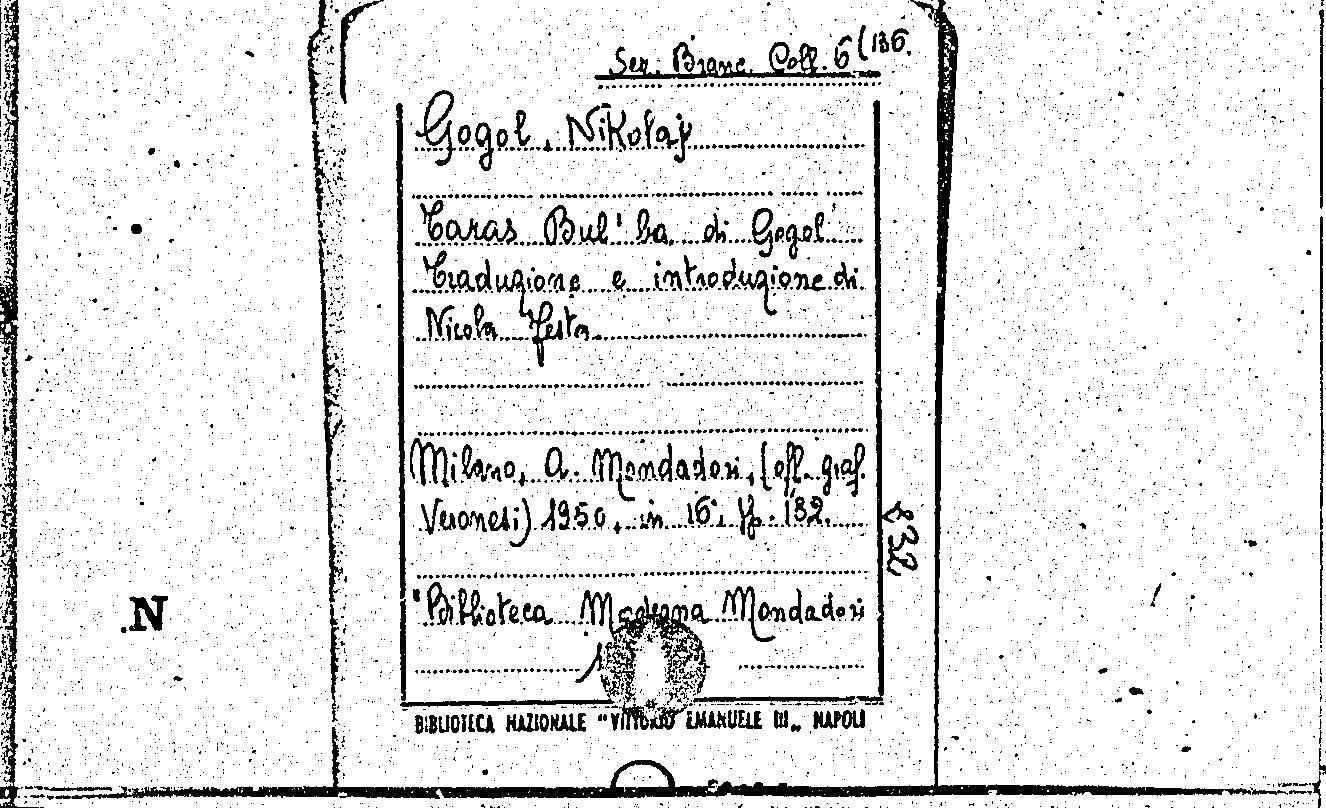 Ser. Branc. Coll. 6(136.
Gogol, Nikolaj
Taras Bul'ba di Gogol'
Traduzione e introduzione di
Nicola Festa.
Milano, A. Mondadori, (off. graf.
Veronesi) 1950, in 16, pp. 132.
832
"Biblioteca Moderna Mondadori
N
BIBLIOTECA NAZIONALE "VITTORIO EMANUELE III„ NAPOLI